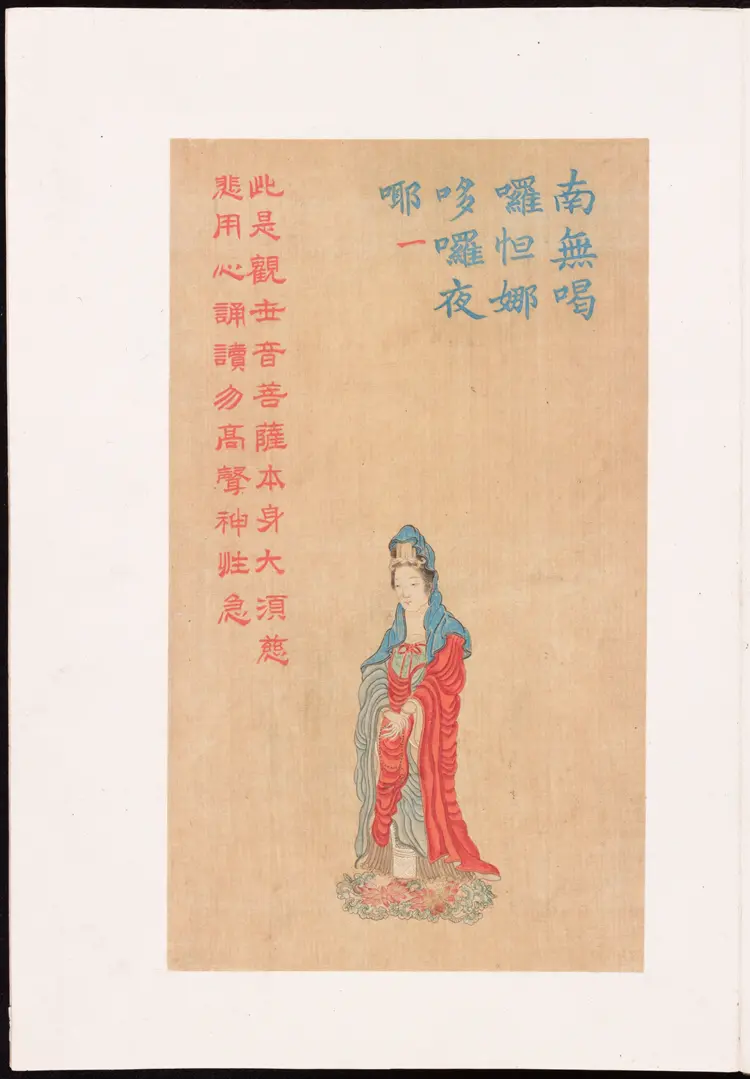 南無喝
囉怛娜
哆囉夜
耶
一
此是觀世音菩薩本身大須慈
悲用心誦讀勿高聲神性急